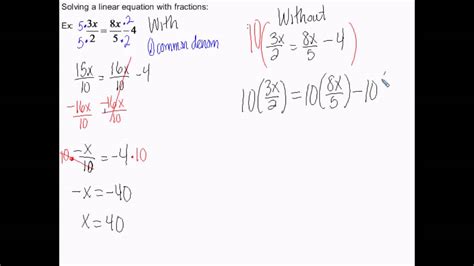 Solving a linear equation with fractions:
Ex: 5·3x/5·2 = 8x·2/5·2 - 4
With
① common denom
15x/10 = 16x/10 - 4
-16x/10 -16x/10
10 · -x/10 = -4 · 10
-x = -40
x = 40
Without
10(3x/2 = 8x/5 - 4)
10(3x/2) = 10(8x/5) - 10